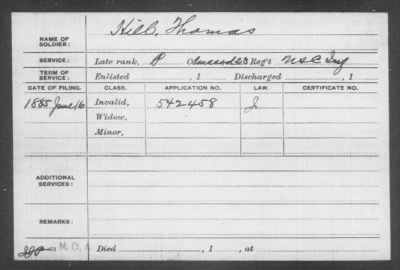 NAME OF SOLDIER: Hill, Thomas
SERVICE: Late rank, P Unassd 23 Regt U S C Inf
TERM OF SERVICE: Enlisted , 1 Discharged , 1
DATE OF FILING. CLASS. APPLICATION NO. LAW. CERTIFICATE NO.
1885 June 16 Invalid, 542458
Widow,
Minor,
ADDITIONAL SERVICES:
REMARKS:
Died , 1 , at